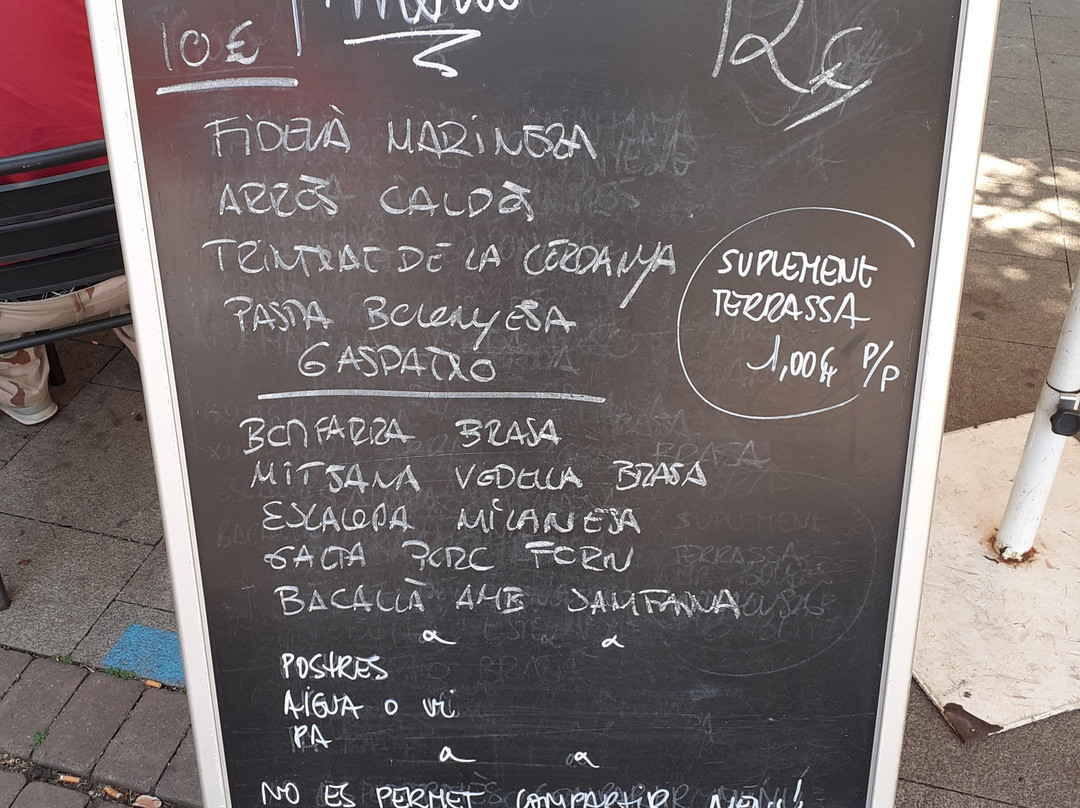 10 €
12 €
FIDEUÀ MARINERA
ARRÒS CALDÓS
TRINTXAT DE LA CERDANYA
PASTA BOLONYESA
GASPATXO
SUPLEMENT
TERRASSA
1,00€ P/P
BOTIFARRA BRASA
MITJANA VEDELLA BRASA
ESCALOPA MILANESA
GALTA PORC FORN
BACALLÀ AMB SAMFAINA
POSTRES
AIGUA O VI
PA
NO ES PERMET COMPARTIR MENÚ!